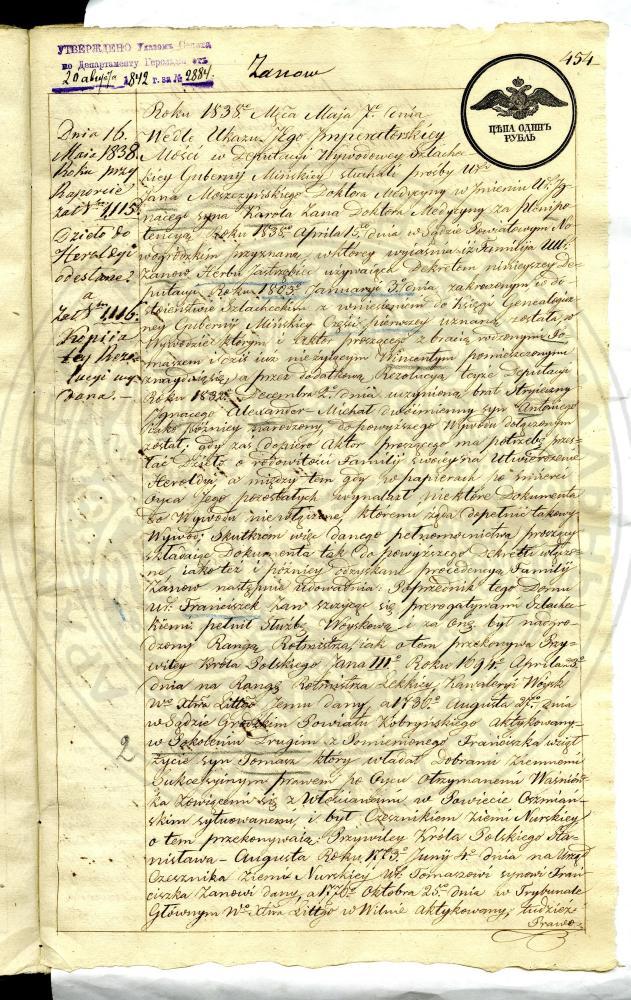 УТВЕРЖДЕНО Указомъ Сената
по Департаменту Герольдіи отъ
20 августа 1842 г. за № 2884.
Zanow
454
ЦѢНА ОДИНЪ
РУБЛЬ
Dnia 16.
Maia 1838
Roku przy
Raporcie
za № 1,115
Dzieło do
Heroldyi
odesłane
a
Za № 1,116
Kopija
tey Rezo
lucyi wy
dana. –
Roku 1838 Mca Maja 7 dnia
Wedle Ukazu Jego Imperatorskiey
Mości w Deputacyi Wywodowey Szlachec
kiey Gubernij Mińskiey słuchali prośby Ur
Jana Moszczyńskiego Doktora Medycyny w Imieniu Ur Ig
nacego syna Karola Zana Doktora Medycyny za Plenipo
tencyą Roku 1838 Aprila 15 dnia w Sądzie Powiatowym No
wogródzkim przyznaną, w którey wyiaśnia iż Familija UU
Zanow Herbu Jastrzębiec używaiąca Dekretem ninieyszey De
putacyi Roku 1803 January 31 dnia zakrozonym w do
stoieństwie Szlacheckim z wniesieniem do Księgi Genealogicz
ney Gubernij Mińskiey Części pierwszey uznaną została, w
Wywodzie którym i Aktor proszącego z bracią rodzonymi To
maszem i dziś iuż nieżyiącym Wincentym pomieszczonymi
znayduią się, a przez dodatkową Rezolucyą teyże Deputacyi
Roku 1832 Decembra 2 dnia uczynioną brat Stryieczny
Ignacego Alexander-Michał dwóimienny syn Antoniego
Jako później narodzony, do powyższego Wywodu dołączonym
został, gdy zaś dopiero Aktor proszącego ma potrzebę przes
łać Dzieło o rodowitości Familij swoiey na Utwierdzenie
Heroldyi, a między tem gdy w papierach po śmierci
Oyca Jego pozostałych wynalazł niektóre Dokumenta
do Wywodu nie włączone, któremi żąda dopełnić takowy
Wywód, skutkiem więc danego pełnomocnictwa proszący
składaiąc Dokumenta tak do powyższego Dekretu włączo
ne, iako też i późniey odzyskane procedencyą Familij
Zanow następnie udowadnia: Poprzednik tego Domu
Ur. Franciszek Zan szczycąc się prerogatywami Szlachec
kiemi pełnił Służbę Woyskową i za onę był nagro
dzony Rangą Rotmistrza, iak o tem przekonywa Przy
wiley Króla Polskiego Jana III Roku 1694 Aprila 3
dnia na Rangę Rotmistrza Lekkiey Kawaleryi Woysk
W Xtwa Littgo Jemu dany, a 1736 Augusta 21 dnia
w Sądzie Grodzkim Powiatu Kobryńskiego Aktykowany,
2
w Pokoleniu Drugim z Pomienionego Franciszka wziął
życie syn Tomasz który władał Dobrami ziemnemi
Sukcessyinym prawem po Oycu Otrzymanemi Waśniów
ka zowiącemi się z Włościanami w Powiecie Oszmian
skim sytuowanemi, i był Cześnikiem Ziemi Nurskiey
o tem przekonywaią: Przywiley Króla Polskiego Sta
nisława-Augusta Roku 1773 Juny 4 dnia na Urząd
Cześnika Ziemi Nurskiey Ur. Tomaszowi synowi Fran
ciszka Zanowi dany, a 1776 Oktobra 25 dnia w Trybunale
Głównym W Xtwa Littgo w Wilnie Aktykowany, tudzież
Prawo